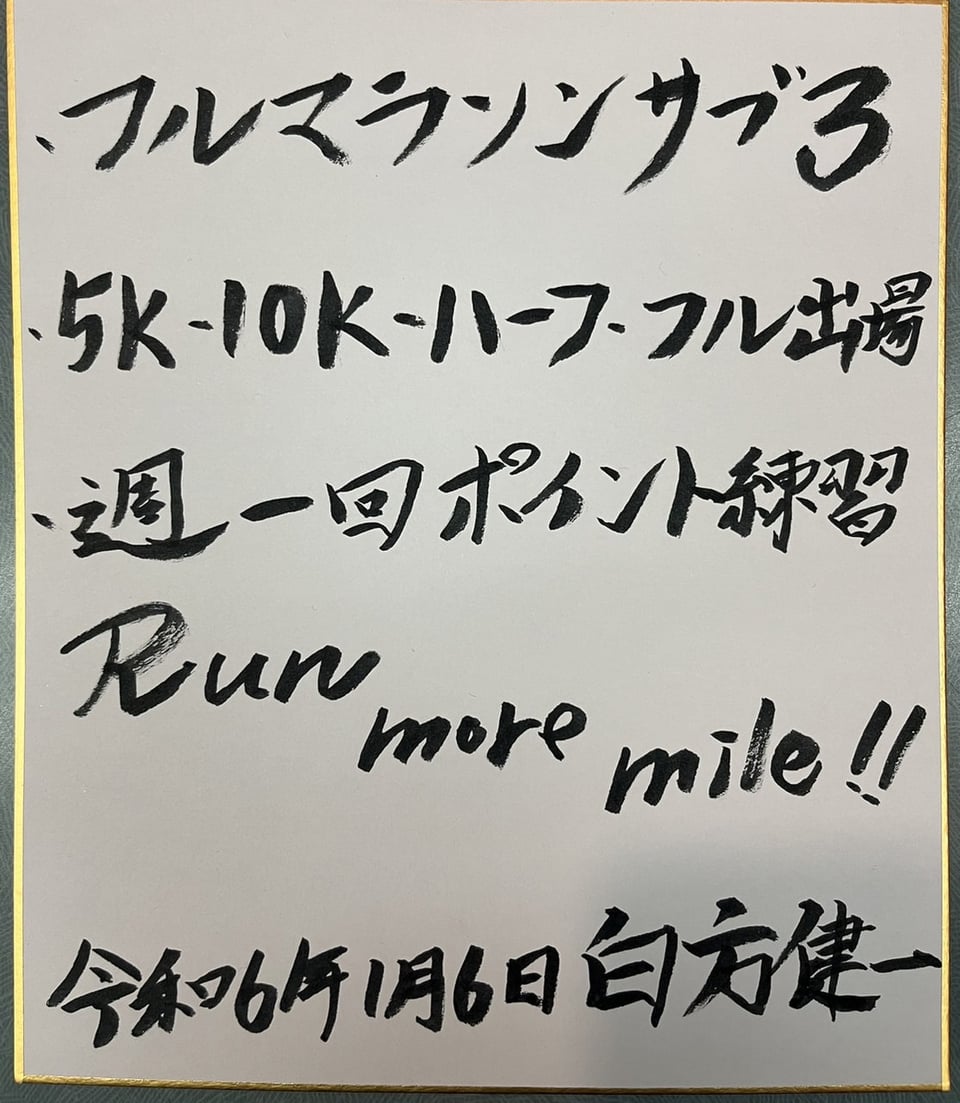 ・フルマラソンサブ3
・5K-10K-ハーフ-フル出場
・週一回ポイント練習
Run more mile!!
令和6年1月6日 白方健一